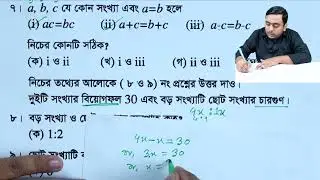 ৭। a, b, c যে কোন সংখ্যা এবং a=b হলে
(i) ac=bc (ii) a+c=b+c (iii) a-c=b-c
নিচের কোনটি সঠিক?
(ক) i ও ii (খ) i ও iii (গ) ii ও iii
নিচের তথ্যের আলোকে ( ৮ ও ৯) নং প্রশ্নের উত্তর দাও।
দুইটি সংখ্যার বিয়োগফল 30 এবং বড় সংখ্যাটি ছোট সংখ্যার চারগুণ।
৮। বড় সংখ্যা ও
(ক) 1:2
4x-x=30
or, 3x=30
or, x=